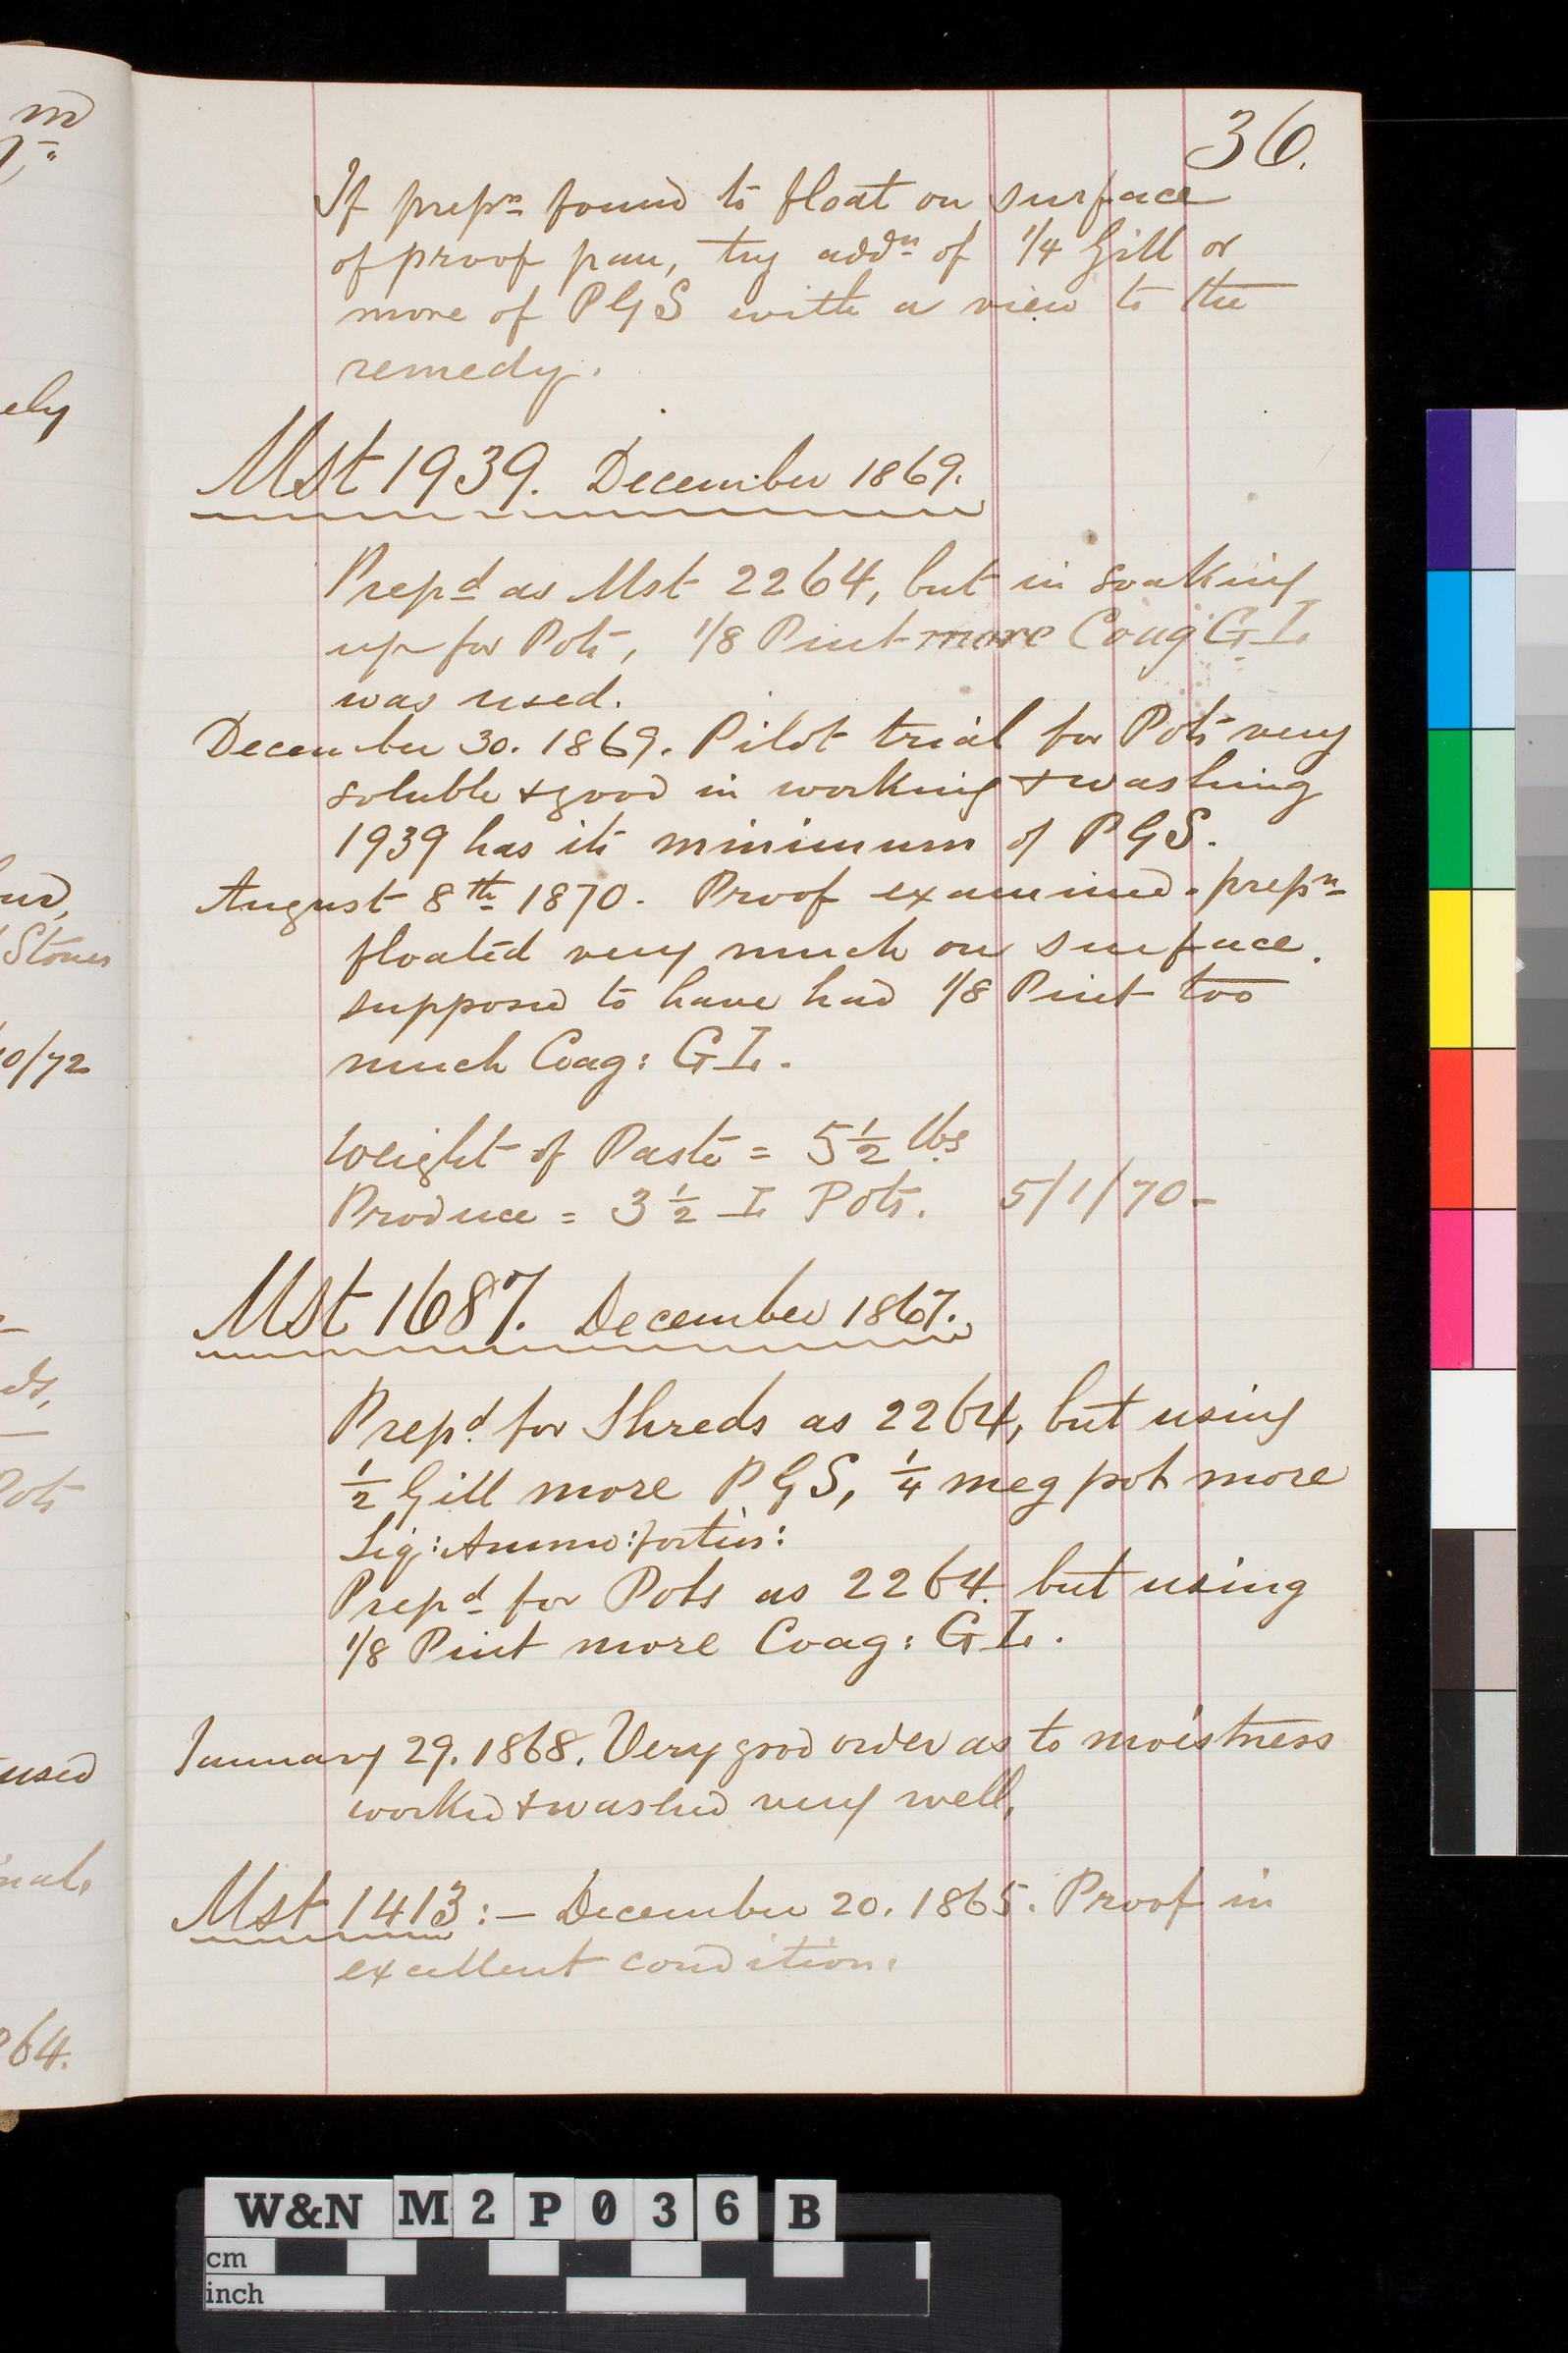 36.
If prepn found to float on surface
of proof pan, try addn of 1/4 Gill or
more of PGS with a view to the
remedy.
Mst 1939. December 1869.
Prepd as Mst 2264, but in soaking
up for Pots, 1/8 Pint more Coag: GL
was used.
December 30. 1869. Pilot trial for Pots very
soluble & good in working & washing
1939 has its minimum of PGS.
August 8th 1870. Proof examined. prepn
floated very much on surface.
supposed to have had 1/8 Pint too
much Coag: GL.
Weight of Paste = 5 1/2 lbs
Produce = 3 1/2 L Pots. 5/1/70-
Mst 1687. December 1867.
Prepd for Shreds as 2264, but using
1/2 Gill more PGS, 1/4 meg pot more
Liq: Ammo: fortis:
Prepd for Pots as 2264. but using
1/8 Pint more Coag: GL.
January 29. 1868. Very good order as to moistness
worked & washed very well.
Mst 1413:— December 20. 1865. Proof in
excellent condition.
ely
Stones
0/72
Pots
used
64.
W&N M2P036B
cm
inch